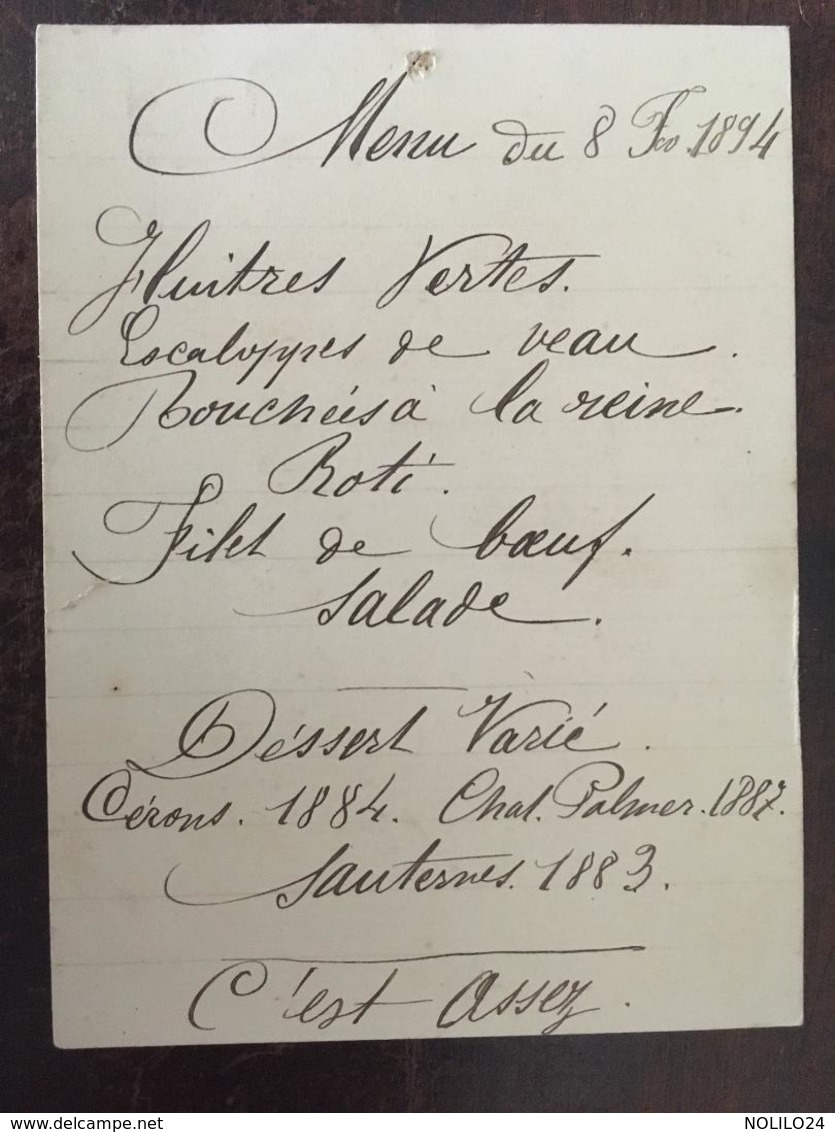 Menu du 8 Fev 1894
Huitres Vertes.
Escaloppes de veau.
Bouchées à la reine.
Roti.
Filet de bœuf.
Salade.
Déssert Varié.
Cérons. 1884. Chat. Palmer. 1887.
Sauternes. 1883.
C'est assez.
delcampe.net
NOLILO24